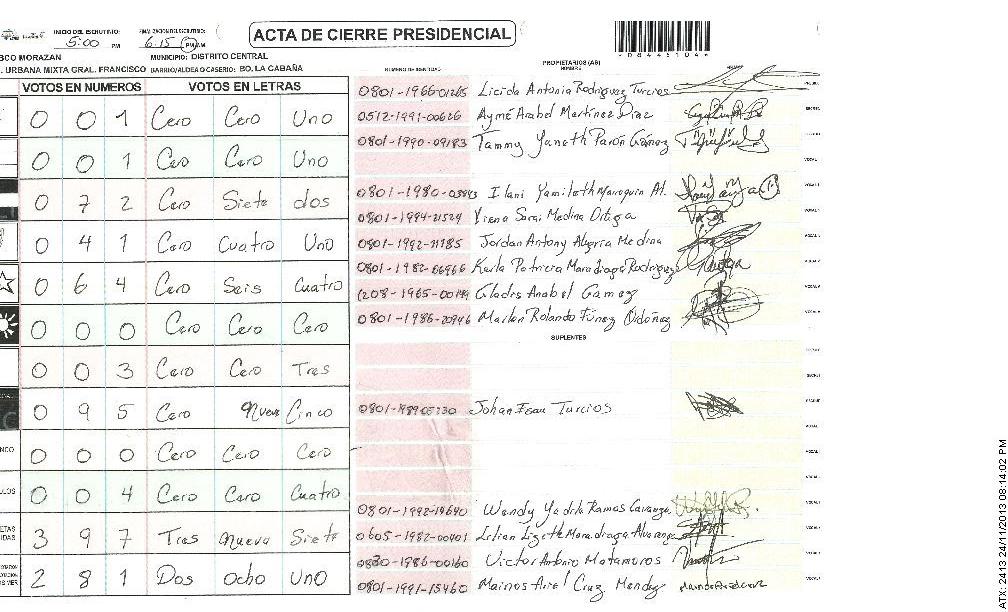 INICIO DEL ESCRUTINIO: 5:00 PM
FINALIZACION DEL ESCRUTINIO: 6:15 PM AM
ACTA DE CIERRE PRESIDENCIAL
SCO MORAZAN MUNICIPIO: DISTRITO CENTRAL
. URBANA MIXTA GRAL. FRANCISCO BARRIO/ALDEA O CASERIO: BO. LA CABAÑA
NUMERO DE IDENTIDAD PROPIETARIOS (AS) NOMBRE
VOTOS EN NUMEROS VOTOS EN LETRAS
0 0 1 Cero Cero Uno
0 0 1 Cero Cero Uno
0 7 2 Cero Siete dos
0 4 1 Cero Cuatro Uno
0 6 4 Cero Seis Cuatro
0 0 0 Cero Cero Cero
0 0 3 Cero Cero Tres
0 9 5 Cero Nueve Cinco
NCO 0 0 0 Cero Cero Cero
LOS 0 0 4 Cero Cero Cuatro
ETAS
IDAS 3 9 7 Tres nueve Siete
2 8 1 Dos Ocho Uno
0801-1966-01265 Licida Antonia Rodriguez Turcios
0512-1991-00626 Aymé Arabel Martinez Diaz
0801-1990-09183 Tammy Yaneth Pavón Gámez
0801-1980- Ilani Yamileth Marroquin
0801-1994-21524 Sarai Medina Ortega
0801-1992-11185 Jordan Antony Medina
0801-1982-06966 Karla Patricia Maradiaga Rodriguez
1208-1965- Gladis Anabel Gamez
0801-1986-20946 Marlon Rolando Fúnez Ordoñez
SUPLENTES
Johan Turcios
0801-1992-19640 Wendy Ramos
0605-1982-00401 Lilian Lizeth Maradiaga
1986-00160 Victor Antonio Matamoros
0801-1991-15460 Cruz
ATX: 2413 24/11/2013 08:14:02 PM